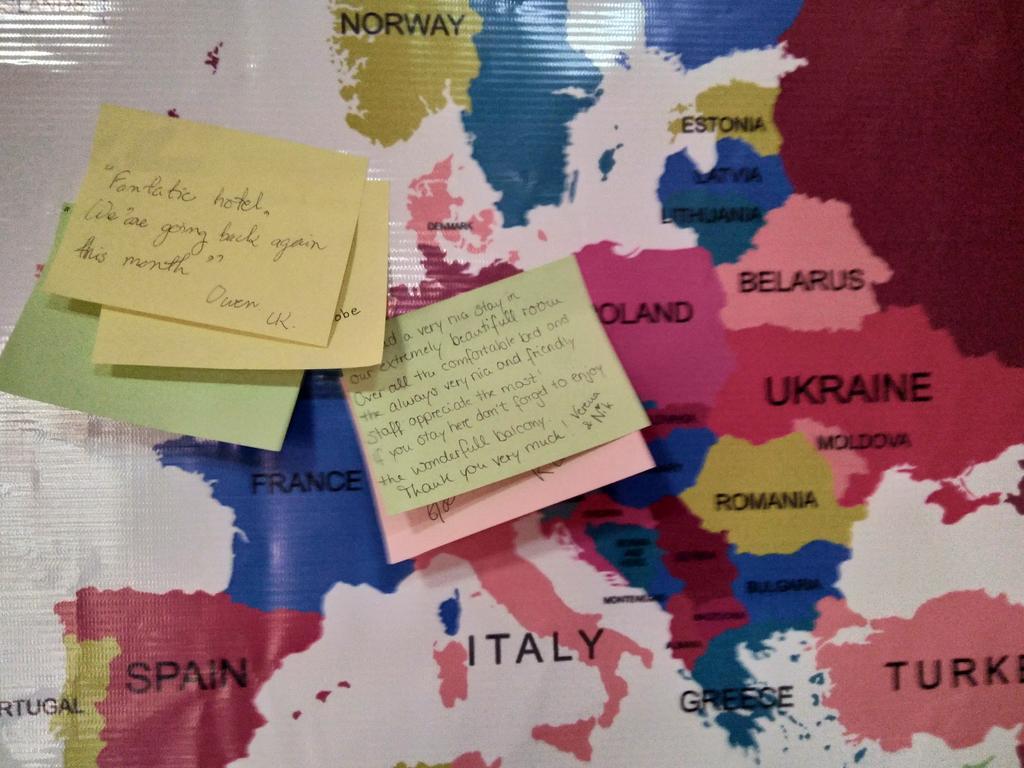 NORWAY
ESTONIA
LATVIA
LITHUANIA
DENMARK
BELARUS
OLAND
UKRAINE
MOLDOVA
"Fantatic hotel,
We are going back again
this month"
Owen
UK.
obe
d a very nia stay in
our extremely beautifull room
Over all the comfortable bed and
the always very nia and friendly
staff appreciate the most!
if you stay here don't forget to enjoy
the wonderfull balcony.
Thank you very much! Verena
& Nik
FRANCE
ROMANIA
BULGARIA
MONTENE
ITALY
SPAIN
RTUGAL
GREECE
TURKE